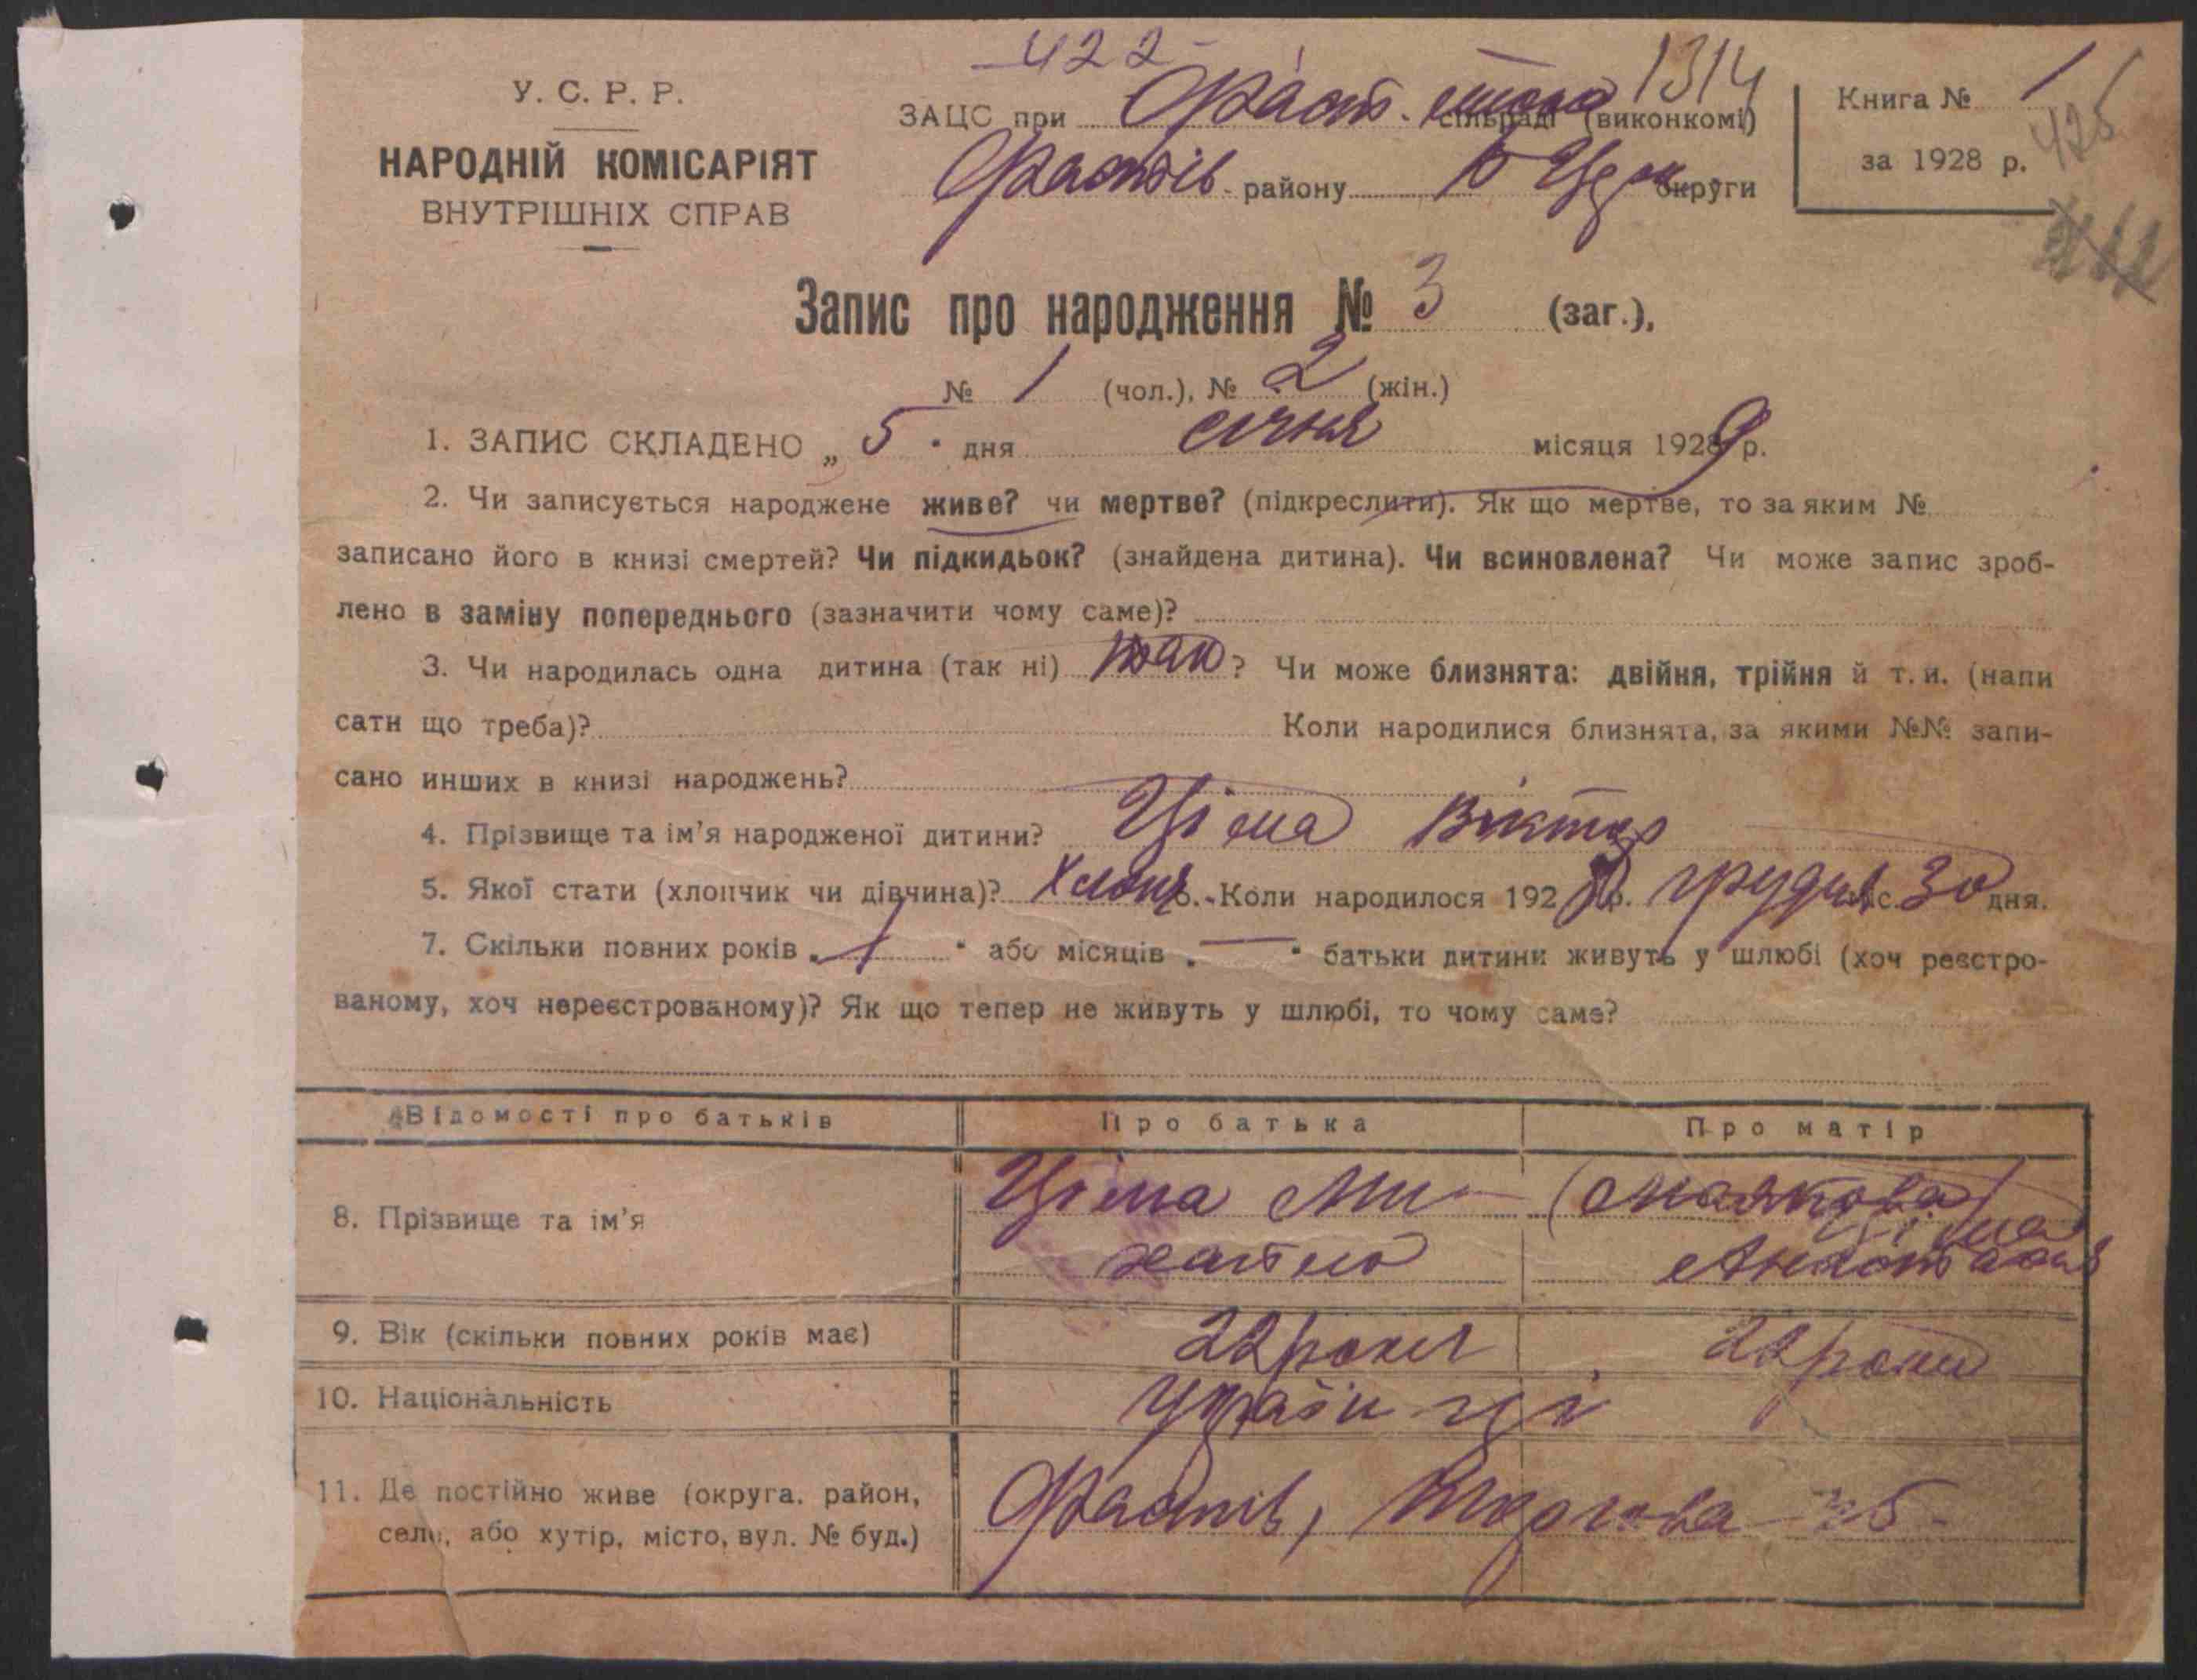 422
1314
У. С. Р. Р.
НАРОДНІЙ КОМІСАРІЯТ
ВНУТРІШНІХ СПРАВ
ЗАЦС при Фаст. сільраді (виконкомі)
Фастів. району Б Церк округи
Книга № 1
за 1928 р.
425
Запис про народження № 3 (заг.),
№ 1 (чол.), № 2 (жін.)
1. ЗАПИС СКЛАДЕНО „ 5 " дня січня місяця 1929 р.
2. Чи записується народжене живе? чи мертве? (підкреслити). Як що мертве, то за яким №
записано його в книзі смертей? Чи підкидьок? (знайдена дитина). Чи всиновлена? Чи може запис зроб-
лено в заміну попереднього (зазначити чому саме)?
3. Чи народилась одна дитина (так ні) так? Чи може близнята: двійня, трійня й т. и. (напи
сати що треба)? Коли народилися близнята, за якими №№ запи-
сано инших в книзі народжень?
4. Прізвище та ім’я народженої дитини? Ціма Віктор
5. Якої стати (хлопчик чи дівчина)? Хлопч 6. Коли народилося 192 р. грудня міс. 30 дня.
7. Скільки повних років „ 1 " або місяців „ — " батьки дитини живуть у шлюбі (хоч реєстро-
ваному, хоч нереєстрованому)? Як що тепер не живуть у шлюбі, то чому саме?
Відомості про батьків Про батька Про матір
8. Прізвище та ім’я Ціма Ми- (Маякова)
Ціма
хайло Анастасія
9. Вік (скільки повних років має) 22 роки 22 роки
10. Національність Українці
11. Де постійно живе (округа, район, Фастів, 5
село, або хутір, місто, вул. № буд.)